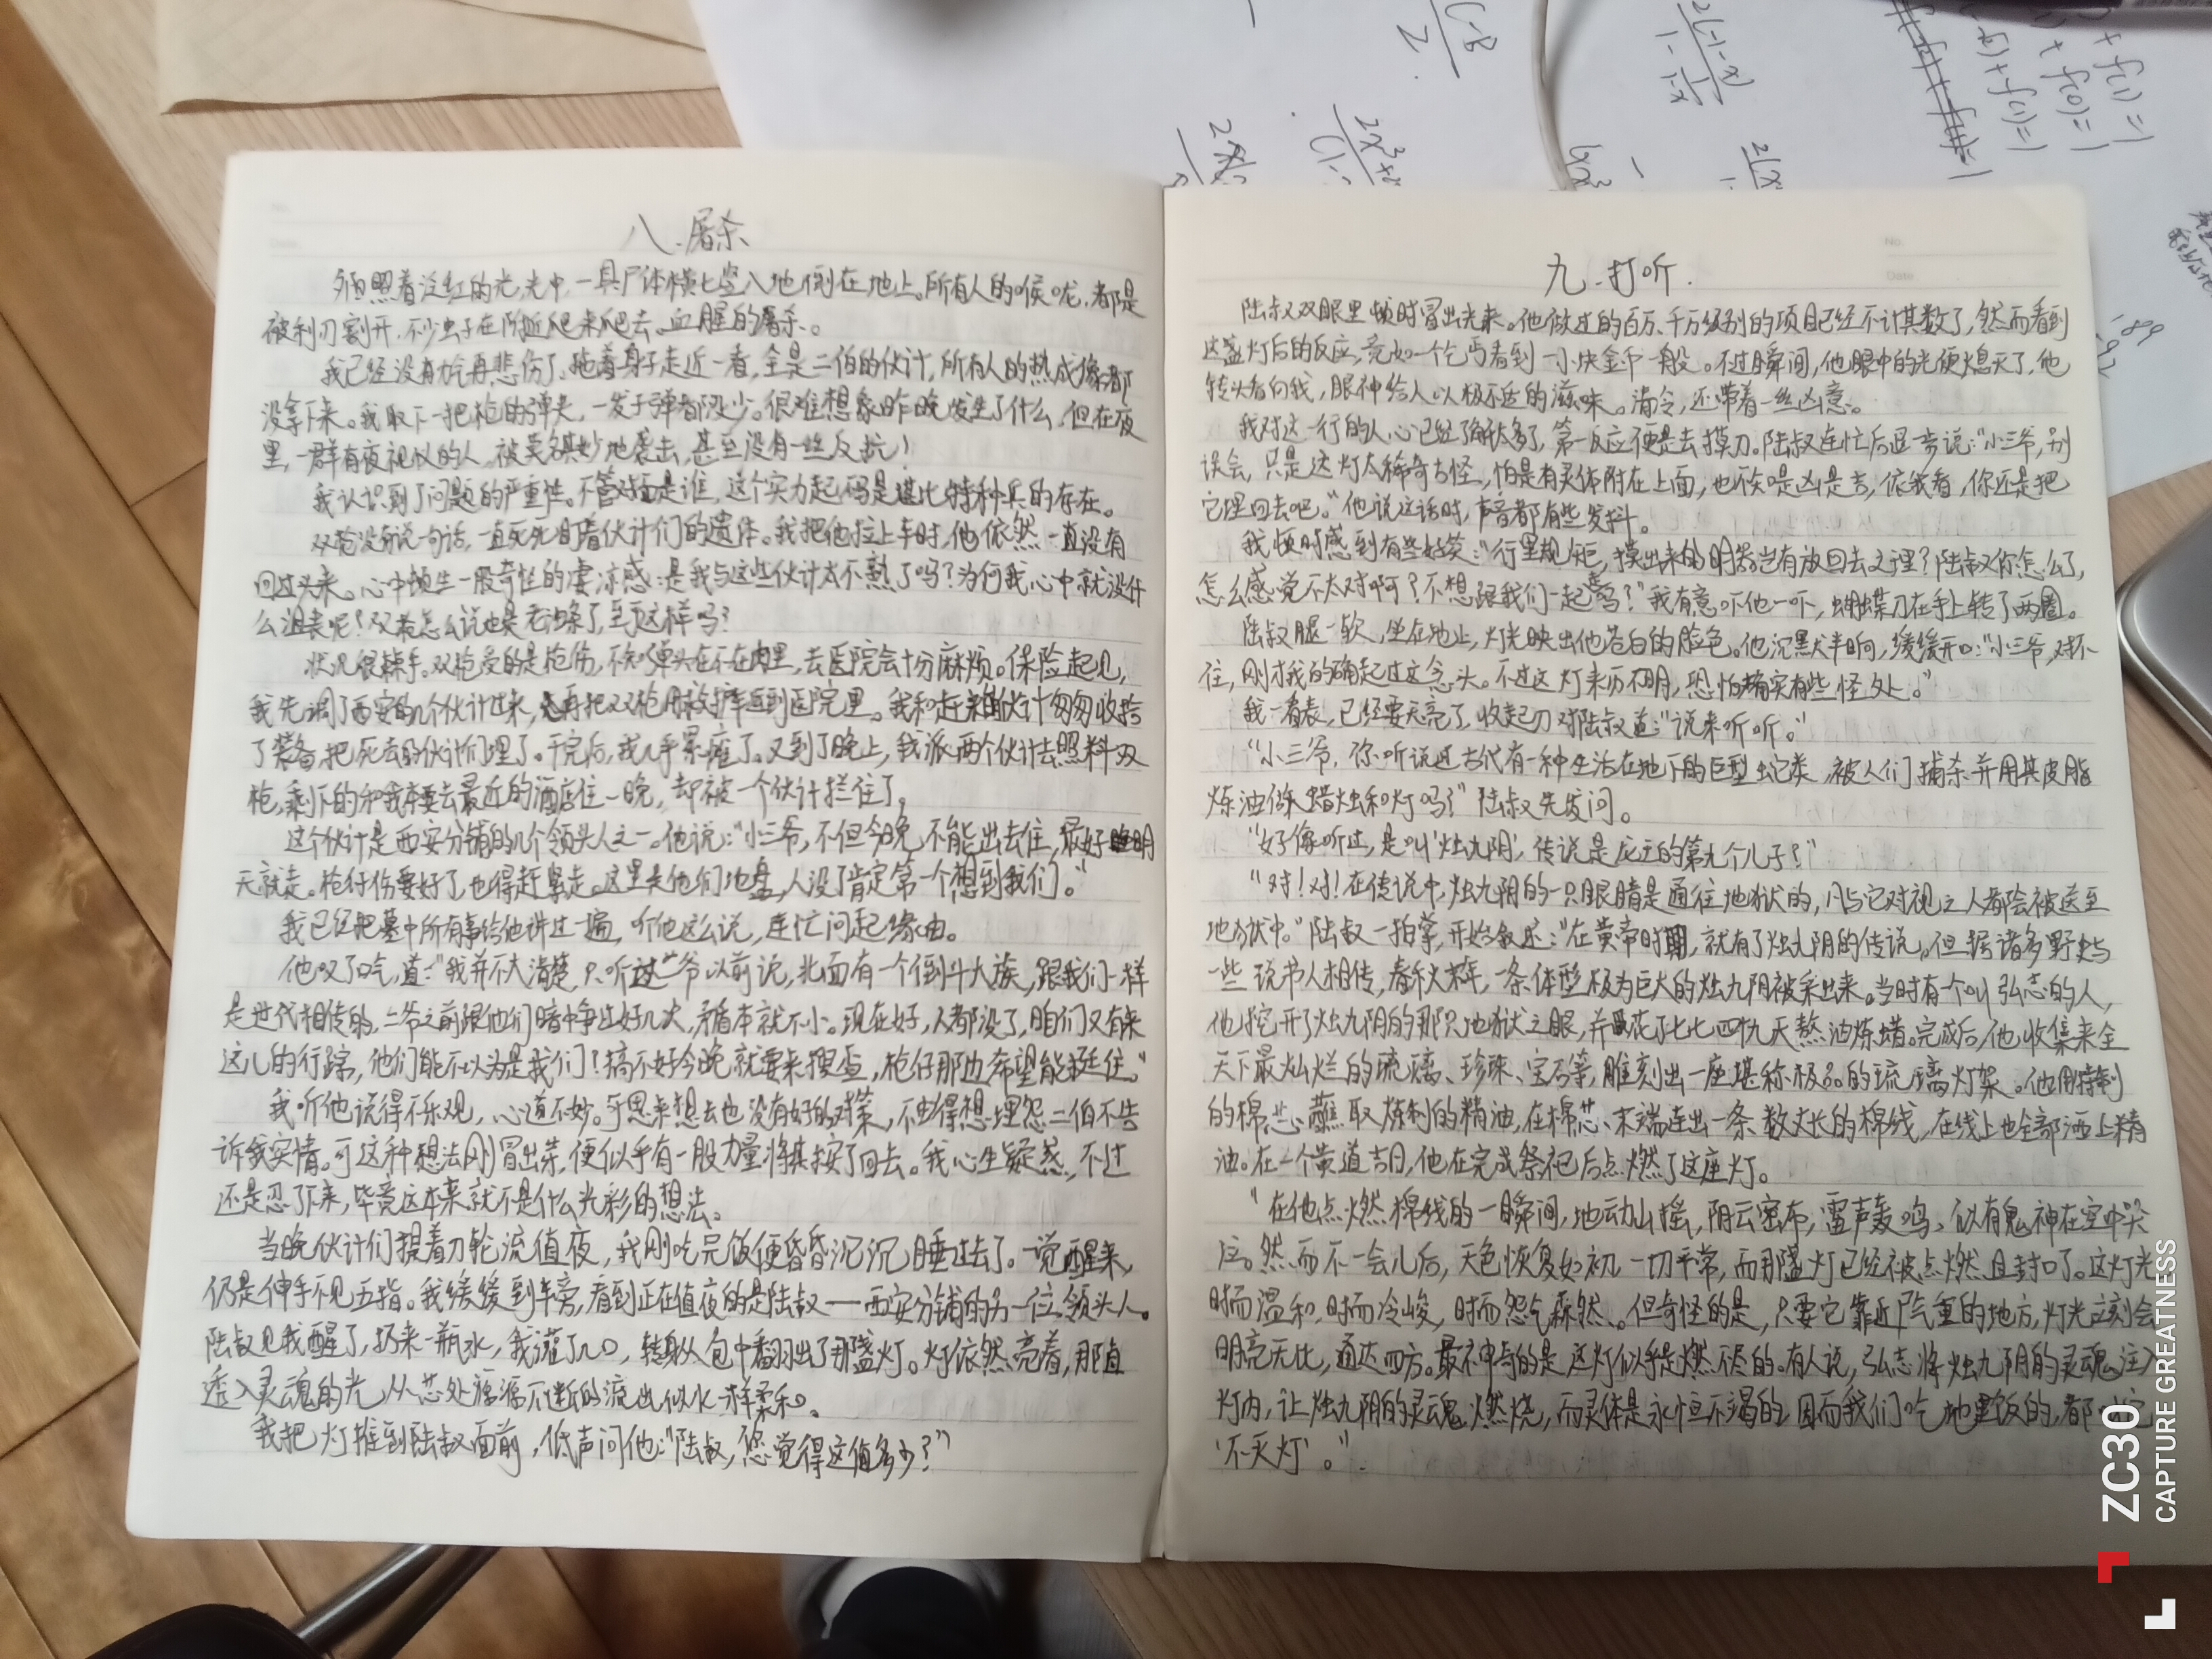 八.屠杀
照着泛红的光,光中,一具尸体横七竖八地倒在地上。所有人的喉咙,都是
被利刃割开,不少虫子在附近爬来爬去。血腥的屠杀。
我已经没有力气再悲伤了。拖着身子走近一看,全是二伯的伙计,所有人的热成像都
没拿下来。我取下一把枪的弹夹,一发子弹都没少。很难想象昨晚发生了什么,但在夜
里,一群有夜视仪的人,被莫名其妙地袭击,甚至没有一丝反抗!
我认识到了问题的严重性。不管对面是谁,这个实力起码是堪比特种兵的存在。
双枪没有说一句话,一直死死盯着伙计们的遗体。我把他拉上车时,他依然一直没有
回过头来。心中顿生一股奇怪的凄凉感:是我与这些伙计太不熟了吗?为何我心中就没什
么沮丧呢?双枪怎么说也是老油条了,至于这样吗?
状况很棘手。双枪受的是枪伤,不知弹头在不在肉里,去医院会十分麻烦。保险起见,
我先调了西安的几个伙计过来,再把双枪用救护车运到医院里。我和赶来的伙计匆匆收拾
了装备,把死去的伙计们埋了。干完后,我几乎累瘫了。又到了晚上,我派两个伙计去照料双
枪,剩下的和我本要去最近的酒店住一晚,却被一个伙计拦住了。
这个伙计是西安分铺的几个领头人之一。他说:“小三爷,不但今晚不能出去住,最好明
天就走。枪仔伤要好了,也得赶紧走。这里是他们地盘,人没了肯定第一个想到我们。”
我已经把墓中所有事给他讲过一遍,听他这么说,连忙问起缘由。
他叹了口气,道:“我并不大清楚,只听过二爷以前说,北面有一个倒斗大族,跟我们一样
是世代相传的,二爷之前跟他们暗中争过好几次,矛盾本就不小。现在好,人都没了,咱们又有来
这儿的行踪,他们能不以为是我们?搞不好今晚就要来搜查,枪仔那边希望能挺住。”
我听他说得不乐观,心道不妙。可思来想去也没有好的对策,不由得想埋怨二伯不告
诉我实情。可这种想法刚冒出来,便似乎有一股力量将其按了回去。我心生疑惑,不过
还是忍了下来,毕竟这本来就不是什么光彩的想法。
当晚伙计们握着刀轮流值夜,我刚吃完饭便昏昏沉沉睡过去了。一觉醒来,
仍是伸手不见五指。我缓缓到车旁,看到正在值夜的是陆叔——西安分铺的另一位领头人。
陆叔见我醒了,扔来一瓶水,我灌了几口,转身从包中翻出了那盏灯。灯依然亮着,那直
透入灵魂的光从芯处源源不断的流出似水一样柔和。
我把灯推到陆叔面前,低声问他:“陆叔,您觉得这值多少?”
九.打听.
陆叔双眼里顿时冒出光来。他做过的百万、千万级别的项目已经不计其数了,然而看到
这盏灯后的反应,竟如一个乞丐看到一小块金币一般。不过瞬间,他眼中的光便熄灭了,他
转头看向我,眼神给人以极不适的滋味。清冷,还带着一丝凶意。
我对这一行的人心已经了解太多了,第一反应便是去摸刀。陆叔连忙后退一步说:“小三爷,别
误会,只是这灯太稀奇古怪,怕是有灵体附在上面,也不知是凶是吉,依我看,你还是把
它埋回去吧。”他说这话时,声音都有些发抖。
我顿时感到有些好笑:“行里规矩,摸出来的明器岂有放回去之理?陆叔你怎么了,
怎么感觉不太对啊?不想跟我们一起了吗?”我有意吓他一吓,蝴蝶刀在手上转了两圈。
陆叔腿一软,坐在地上,灯光映出他苍白的脸色。他沉默半晌,缓缓开口:“小三爷,对不
住,刚才我的确起过这念头。不过这灯来历不明,恐怕确实有些怪处。”
我一看表,已经要天亮了,收起刀对陆叔道:“说来听听。”
“小三爷,你听说过古代有一种生活在地下的巨型蛇类,被人们捕杀并用其皮脂
炼油做蜡烛和灯吗?”陆叔先发问。
“好像听过,是叫‘烛九阴’,传说是龙王的第九个儿子?”
“对!对!在传说中,烛九阴的一只眼睛是通往地狱的,凡与它对视之人都会被送至
地狱中。”陆叔一拍掌,开始叙述:“在黄帝时期,就有了烛九阴的传说。但据诸多野史与
一些说书人相传,春秋末年,一条体型极为巨大的烛九阴被采出来。当时有个叫弘志的人,
他挖开了烛九阴的那只地狱之眼,并花了七七四十九天熬油炼蜡。完成后,他收集来全
天下最灿烂的琉璃、珍珠、宝石等,雕刻出一座堪称极品的琉璃灯架。他用特制
的棉芯蘸取炼制的精油,在棉芯末端连出一条数丈长的棉线,在线上也全部洒上精
油。在一个黄道吉日,他在完成祭祀后点燃了这座灯。
“在他点燃棉线的一瞬间,地动山摇,阴云密布,雷声轰鸣,似有鬼神在空中哭
泣。然而不一会儿后,天色恢复如初,一切平常,而那盏灯已经被点燃且封口了。这灯光
时而温和,时而冷峻,时而怨气森然。但奇怪的是,只要它靠近尸气重的地方,灯光立刻会
明亮无比,通达四方。最不神奇的是这灯似乎是燃不尽的。有人说,弘志将烛九阴的灵魂注入
灯内,让烛九阴的灵魂燃烧,而灵体是永恒不竭的,因而我们吃地里饭的,都叫它
‘不灭灯’。”
ZC30
CAPTURE GREATNESS